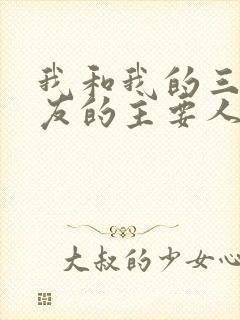 我和我的三
友的主要人
大叔的少女心